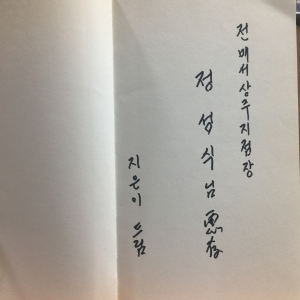 전매서상주지점장
정성식님惠存
지은이 드림